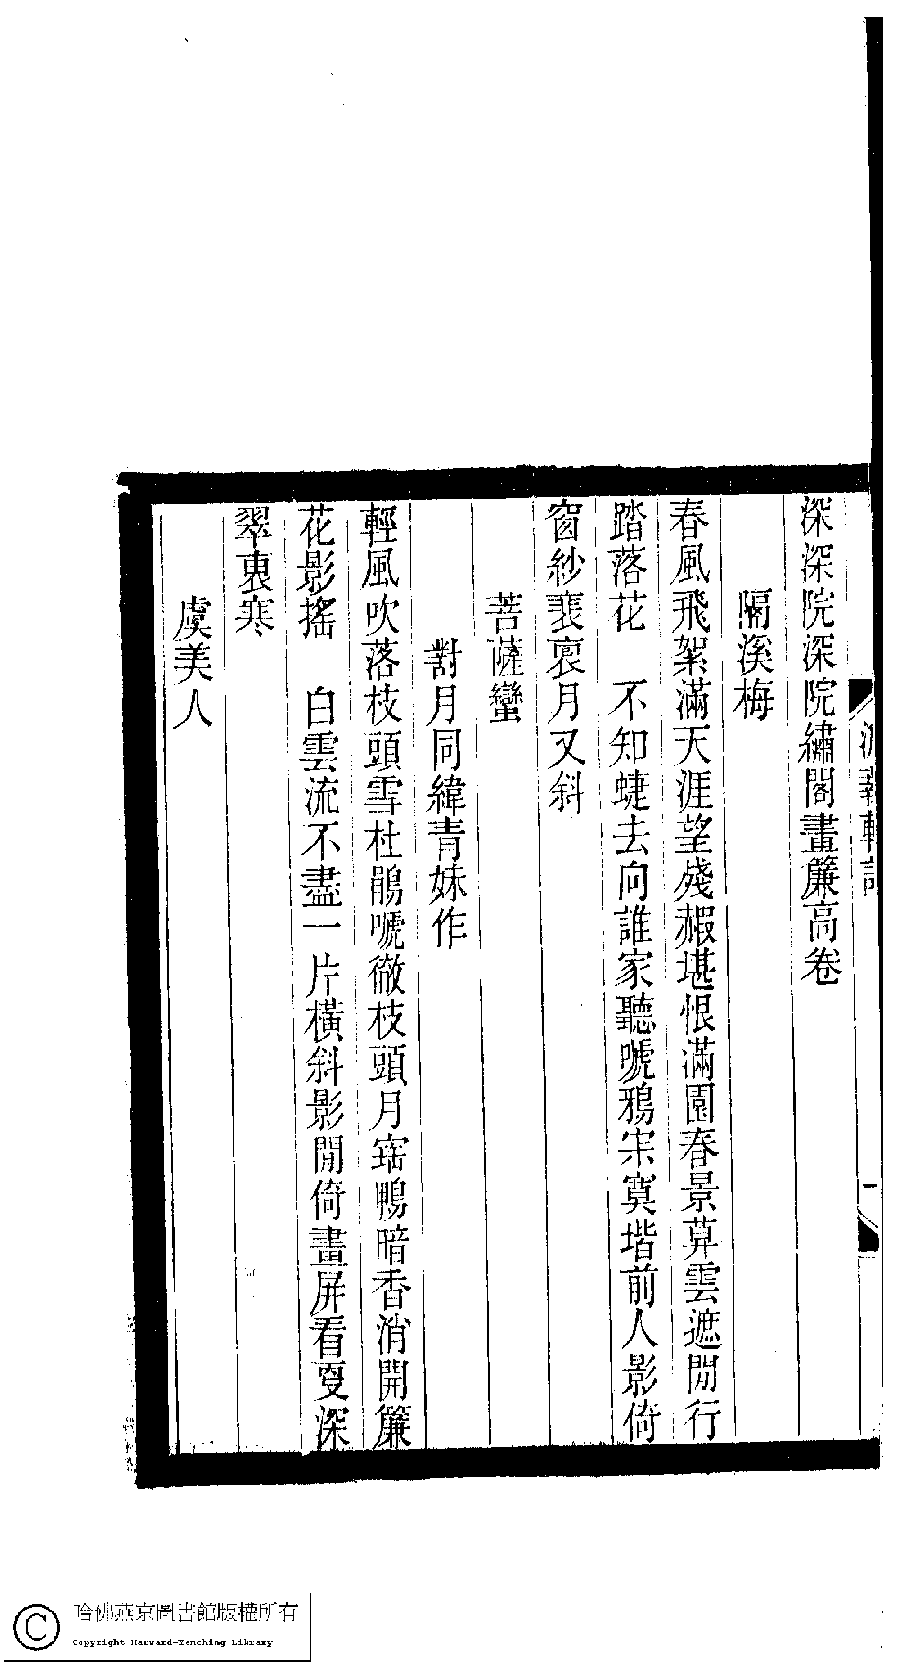 深深院深院繡閣畫簾高卷
隔溪梅
春風飛絮滿天涯望殘赮堪恨滿園春景莫雲遮閒行
踏落花　不知蜨去向誰家聽嗁鴉宋寞堦前人影倚
窗紗裵裹月又斜
菩薩蠻
對月同緯青妹作
輕風吹落枝頭雪杜鵑嗁徹枝頭月寶鴨暗香消開簾
花影搖　白雲流不盡一片橫斜影閒倚畫屏看夐深
翠裏寒
虞美人
一
哈佛燕京圖書館版權所有
Copyright Harvard-Yenching Library